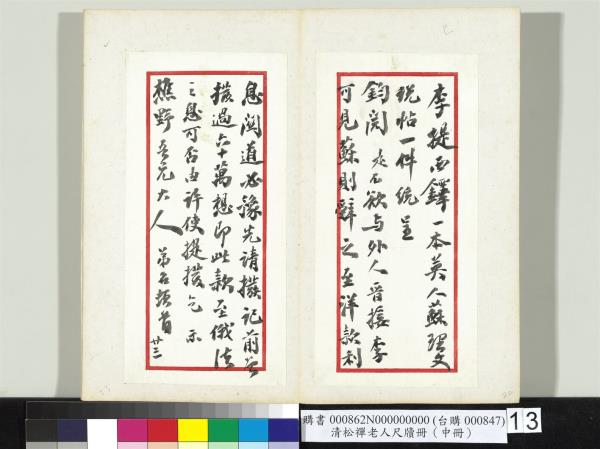 李提西鐸一本英人蘇理文
說帖一件統呈
鈞閱 欲与外人晉接李
可見蘇則辭之至洋款利
息閱道必豫先請撥記前曾
撥過六十萬想即此款至俄法
之息可否由許使提撥乞 示
樵野 大人 弟 頓首 廿三
購書 000862N000000000 (台購 000847)
清松禪老人尺牘冊（中冊）
13